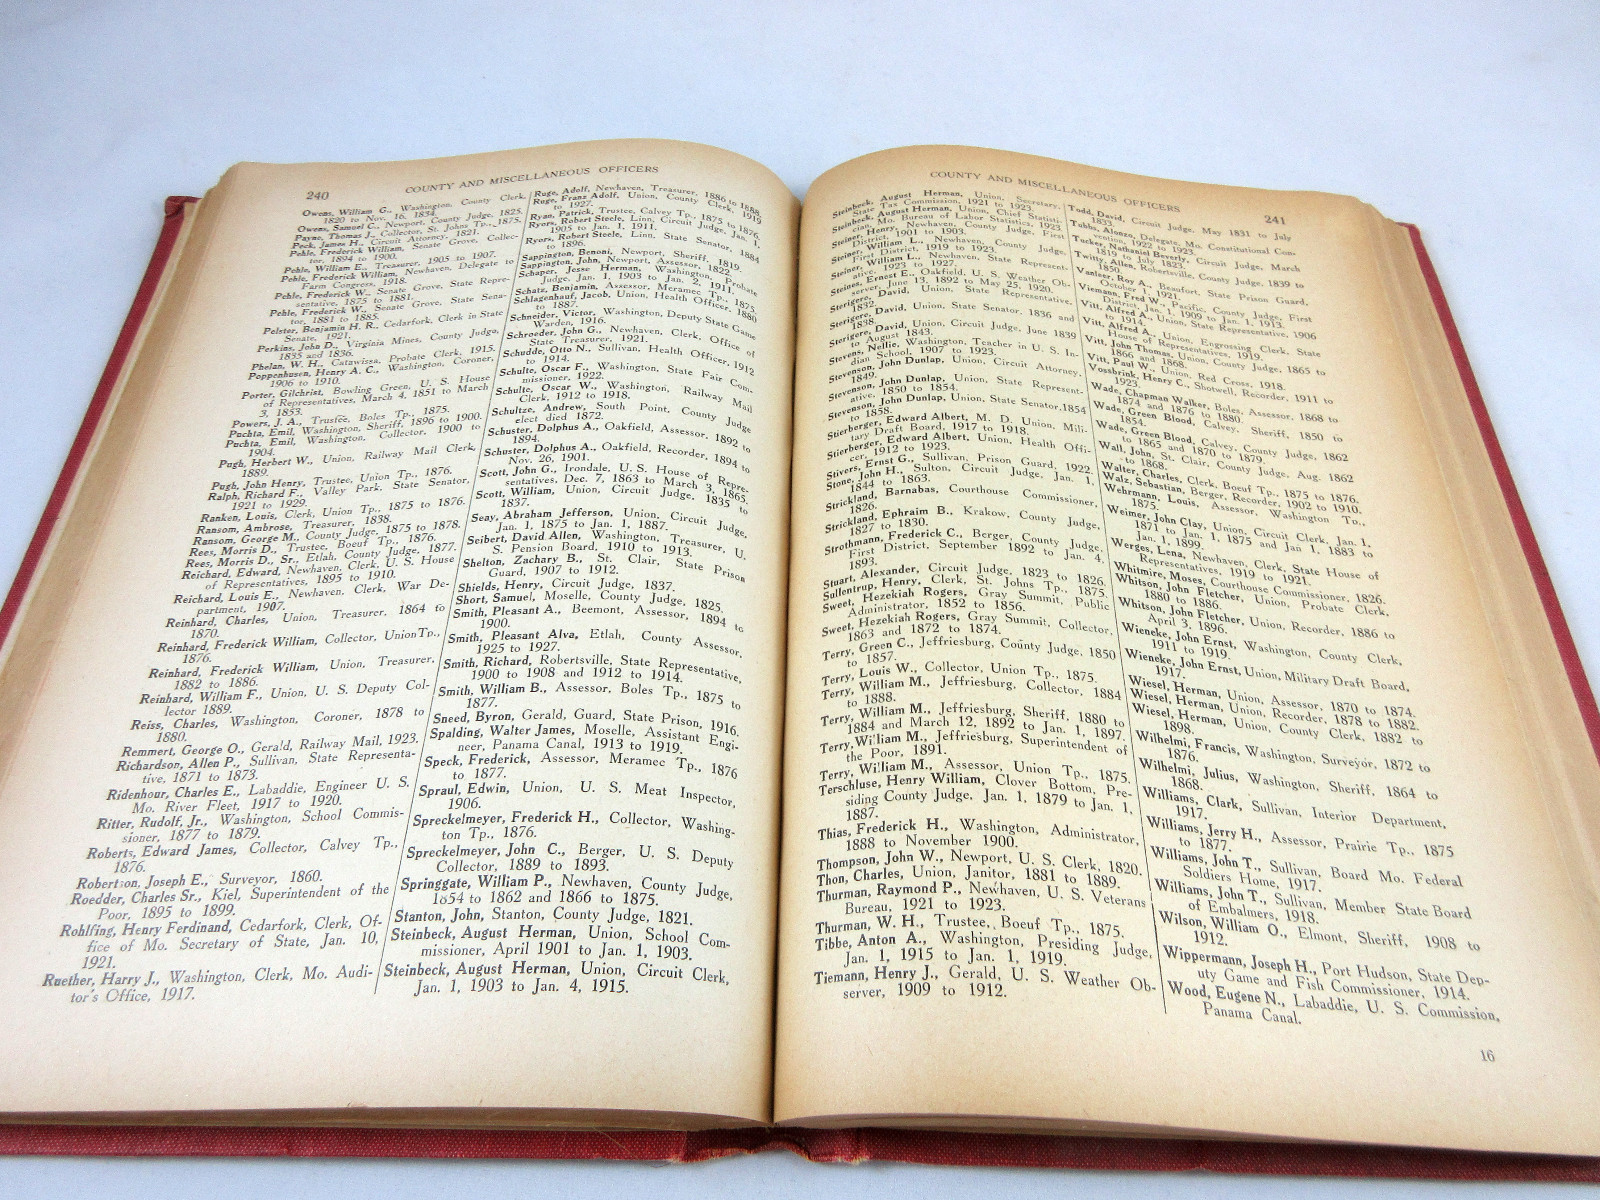 240
COUNTY AND MISCELLANEOUS OFFICERS
Owens, William G., Washington, County Clerk,
1820 to Nov. 16, 1834.
Owens, Samuel C., Newport, County Judge, 1825.
Payne, Thomas J., Collector, St. Johns Tp., 1875.
Peck, James H., Circuit Attorney, 1821.
Pehle, Frederick William, Senate Grove, Collec-
tor, 1894 to 1900.
Pehle, William E., Treasurer, 1905 to 1907.
Pehle, Frederick William, Newhaven, Delegate to
Farm Congress, 1918.
Pehle, Frederick W., Senate Grove, State Repre-
sentative, 1875 to 1881.
Pehle, Frederick W., Senate Grove, State Sena-
tor, 1881 to 1885.
Pelster, Benjamin H. R., Cedarfork, Clerk in State
Senate, 1921.
Perkins, John D., Virginia Mines, County Judge,
1835 and 1836.
Phelan, W. H., Catawissa, Probate Clerk, 1915.
Poppenhusen, Henry A. C., Washington, Coroner,
1906 to 1910.
Porter, Gilchrist, Bowling Green, U. S. House
of Representatives, March 4, 1851 to March
3, 1853.
Powers, J. A., Trustee, Boles Tp., 1875.
Puchta, Emil, Washington, Sheriff, 1896 to 1900.
Puchta, Emil, Washington, Collector, 1900 to
1904.
Pugh, Herbert W., Union, Railway Mail Clerk,
1889.
Pugh, John Henry, Trustee, Union Tp., 1876.
Ralph, Richard F., Valley Park, State Senator,
1921 to 1929.
Ranken, Louis, Clerk, Union Tp., 1875 to 1876.
Ransom, Ambrose, Treasurer, 1838.
Ransom, George M., County Judge, 1875 to 1878.
Rees, Morris D., Trustee, Boeuf Tp., 1876.
Rees, Morris D., Sr., Etlah, County Judge, 1877.
Reichard, Edward, Newhaven, Clerk, U. S. House
of Representatives, 1895 to 1910.
Reichard, Louis E., Newhaven, Clerk, War De-
partment, 1907.
Reinhard, Charles, Union, Treasurer, 1864 to
1870.
Reinhard, Frederick William, Collector, Union Tp.,
1876.
Reinhard, Frederick William, Union, Treasurer,
1882 to 1886.
Reinhard, William F., Union, U. S. Deputy Col-
lector 1889.
Reiss, Charles, Washington, Coroner, 1878 to
1880.
Remmert, George O., Gerald, Railway Mail, 1923.
Richardson, Allen P., Sullivan, State Representa-
tive, 1871 to 1873.
Ridenhour, Charles E., Labaddie, Engineer U. S.
Mo. River Fleet, 1917 to 1920.
Ritter, Rudolf, Jr., Washington, School Commis-
sioner, 1877 to 1879.
Roberts, Edward James, Collector, Calvey Tp.,
1876.
Robertson, Joseph E., Surveyor, 1860.
Roedder, Charles Sr., Kiel, Superintendent of the
Poor, 1895 to 1899.
Rohlfing, Henry Ferdinand, Cedarfork, Clerk, Of-
fice of Mo. Secretary of State, Jan. 10,
1921.
Ruether, Harry J., Washington, Clerk, Mo. Audi-
tor's Office, 1917.
Ruge, Adolf, Newhaven, Treasurer, 1886 to 1888.
Ruge, Franz Adolf, Union, County Clerk, 1919
to 1927.
Ryan, Patrick, Trustee, Calvey Tp., 1875 to 1876.
Ryors, Robert Steele, Linn, Circuit Judge, Jan. 1,
1905 to Jan. 1, 1911.
Ryors, Robert Steele, Linn, State Senator, 1884
to 1896.
Sappington, Benoni, Newport, Sheriff, 1819.
Sappington, John, Newport, Assessor, 1822.
Schaper, Jesse Herman, Washington, Probate
Judge, Jan. 1, 1903 to Jan. 2, 1911.
Schatz, Benjamin, Assessor, Meramec Tp., 1875.
Schlagenhauf, Jacob, Union, Health Officer, 1880
to 1887.
Schneider, Victor, Washington, Deputy State Game
Warden, 1916.
Schroeder, John G., Newhaven, Clerk, Office of
State Treasurer, 1921.
Schudde, Otto N., Sullivan, Health Officer, 1912
to 1914.
Schulte, Oscar F., Washington, State Fair Com-
missioner, 1922.
Schulte, Oscar W., Washington, Railway Mail
Clerk, 1912 to 1918.
Schultze, Andrew, South Point, County Judge
elect died 1872.
Schuster, Dolphus A., Oakfield, Assessor, 1892 to
1894.
Schuster, Dolphus A., Oakfield, Recorder, 1894 to
Nov. 26, 1901.
Scott, John G., Irondale, U. S. House of Repre-
sentatives, Dec. 7, 1863 to March 3, 1865.
Scott, William, Union, Circuit Judge, 1835 to
1837.
Seay, Abraham Jefferson, Union, Circuit Judge,
Jan. 1, 1875 to Jan. 1, 1887.
Seibert, David Allen, Washington, Treasurer, U.
S. Pension Board, 1910 to 1913.
Shelton, Zachary B., St. Clair, State Prison
Guard, 1907 to 1912.
Shields, Henry, Circuit Judge, 1837.
Short, Samuel, Moselle, County Judge, 1825.
Smith, Pleasant A., Beemont, Assessor, 1894 to
1900.
Smith, Pleasant Alva, Etlah, County Assessor,
1925 to 1927.
Smith, Richard, Robertsville, State Representative,
1900 to 1908 and 1912 to 1914.
Smith, William B., Assessor, Boles Tp., 1875 to
1877.
Sneed, Byron, Gerald, Guard, State Prison, 1916.
Spalding, Walter James, Moselle, Assistant Engi-
neer, Panama Canal, 1913 to 1919.
Speck, Frederick, Assessor, Meramec Tp., 1876
to 1877.
Spraul, Edwin, Union, U. S. Meat Inspector,
1906.
Spreckelmeyer, Frederick H., Collector, Washing-
ton Tp., 1876.
Spreckelmeyer, John C., Berger, U. S. Deputy
Collector, 1889 to 1893.
Springgate, William P., Newhaven, County Judge,
1854 to 1862 and 1866 to 1875.
Stanton, John, Stanton, County Judge, 1821.
Steinbeck, August Herman, Union, School Com-
missioner, April 1901 to Jan. 1, 1903.
Steinbeck, August Herman, Union, Circuit Clerk,
Jan. 1, 1903 to Jan. 4, 1915.
COUNTY AND MISCELLANEOUS OFFICERS
241
Steinbeck, August Herman, Union, Secretary,
State Tax Commission, 1921 to 1923.
Steinbeck, August Herman, Union, Chief Statisti-
cian, Mo. Bureau of Labor Statistics, 1923.
Steiner, Henry, Newhaven, County Judge, First
District, 1901 to 1903.
Steiner, William L., Newhaven, County Judge,
First District, 1919 to 1923.
Steiner, William L., Newhaven, State Represent-
ative, 1923 to 1927.
Steines, Ernest E., Oakfield, U. S. Weather Ob-
server, June 13, 1892 to May 25, 1920.
Sterigere, David, Union, State Representative,
1832.
Sterigere, David, Union, State Senator, 1836 and
1838.
Sterigere, David, Union, Circuit Judge, June 1839
to August 1843.
Stevens, Nellie, Washington, Teacher in U. S. In-
dian School, 1907 to 1923.
Stevenson, John Dunlap, Union, Circuit Attorney,
1849.
Stevenson, John Dunlap, Union, State Represent-
ative, 1850 to 1854.
Stevenson, John Dunlap, Union, State Senator, 1854
to 1858.
Stierberger, Edward Albert, M. D., Union, Mili-
tary Draft Board, 1917 to 1918.
Stierberger, Edward Albert, Union, Health Offi-
cer, 1912 to 1923.
Stivers, Ernst G., Sullivan, Prison Guard, 1922.
Stone, John H., Sulton, Circuit Judge, Jan. 1,
1844 to 1863.
Strickland, Barnabas, Courthouse Commissioner,
1826.
Strickland, Ephraim B., Krakow, County Judge,
1827 to 1830.
Strothmann, Frederick C., Berger, County Judge,
First District, September 1892 to Jan. 4,
1893.
Stuart, Alexander, Circuit Judge, 1823 to 1826.
Sullentrup, Henry, Clerk, St. Johns Tp., 1875.
Sweet, Hezekiah Rogers, Gray Summit, Public
Administrator, 1852 to 1856.
Sweet, Hezekiah Rogers, Gray Summit, Collector,
1863 and 1872 to 1874.
Terry, Green C., Jeffriesburg, County Judge, 1850
to 1857.
Terry, Louis W., Collector, Union Tp., 1875.
Terry, William M., Jeffriesburg, Collector, 1884
to 1888.
Terry, William M., Jeffriesburg, Sheriff, 1880 to
1884 and March 12, 1892 to Jan. 1, 1897.
Terry, William M., Jeffriesburg, Superintendent of
the Poor, 1891.
Terry, William M., Assessor, Union Tp., 1875.
Terschluse, Henry William, Clover Bottom, Pre-
siding County Judge, Jan. 1, 1879 to Jan. 1,
1887.
Thias, Frederick H., Washington, Administrator,
1888 to November 1900.
Thompson, John W., Newport, U. S. Clerk, 1820.
Thon, Charles, Union, Janitor, 1881 to 1889.
Thurman, Raymond P., Newhaven, U. S. Veterans
Bureau, 1921 to 1923.
Thurman, W. H., Trustee, Boeuf Tp., 1875.
Tibbe, Anton A., Washington, Presiding Judge,
Jan. 1, 1915 to Jan. 1, 1919.
Tiemann, Henry J., Gerald, U. S. Weather Ob-
server, 1909 to 1912.
Todd, David, Circuit Judge, May 1831 to July
1833.
Tubbs, Alonzo, Delegate, Mo. Constitutional Con-
vention, 1922 to 1923.
Tucker, Nathaniel Beverly, Circuit Judge, March
1819 to July 1823.
Twitty, Allen, Robertsville, County Judge, 1839 to
1850.
Vanleer, Roy A., Beaufort, State Prison Guard,
October 1, 1921.
Viemann, Fred W., Pacific, County Judge, First
District, Jan. 1, 1909 to Jan. 1, 1913.
Vitt, Alfred A., Union, State Representative, 1906
to 1914.
Vitt, Alfred A., Union, Engrossing Clerk, State
House of Representatives, 1919.
Vitt, John Thomas, Union, County Judge, 1865 to
1866 and 1868.
Vitt, Paul W., Union, Red Cross, 1918.
Vossbrink, Henry C., Shotwell, Recorder, 1911 to
1923.
Wade, Chapman Walker, Boles, Assessor, 1868 to
1874 and 1876 to 1880.
Wade, Green Blood, Calvey, Sheriff, 1850 to
1854.
Wade, Green Blood, Calvey, County Judge, 1862
to 1865 and 1870 to 1879.
Wall, John, St. Clair, County Judge, Aug. 1862
to 1868.
Walter, Charles, Clerk, Boeuf Tp., 1875 to 1876.
Walz, Sebastian, Berger, Recorder, 1902 to 1910.
Wehrmann, Louis, Assessor, Washington To.,
1875.
Weimer, John Clay, Union, Circuit Clerk, Jan. 1,
1871 to Jan. 1, 1875 and Jan 1, 1883 to
Jan. 1, 1899.
Werges, Lena, Newhaven, Clerk, State House of
Representatives, 1919 to 1921.
Whitmire, Moses, Courthouse Commissioner, 1826.
Whitson, John Fletcher, Union, Probate Clerk,
1880 to 1886.
Whitson, John Fletcher, Union, Recorder, 1886 to
April 3, 1896.
Wieneke, John Ernst, Washington, County Clerk,
1911 to 1919.
Wieneke, John Ernst, Union, Military Draft Board,
1917.
Wiesel, Herman, Union, Assessor, 1870 to 1874.
Wiesel, Herman, Union, Recorder, 1878 to 1882.
Wiesel, Herman, Union, County Clerk, 1882 to
1898.
Wilhelmi, Francis, Washington, Surveyor, 1872 to
1876.
Wilhelmi, Julius, Washington, Sheriff, 1864 to
1868.
Williams, Clark, Sullivan, Interior Department,
1917.
Williams, Jerry H., Assessor, Prairie Tp., 1875
to 1877.
Williams, John T., Sullivan, Board Mo. Federal
Soldiers Home, 1917.
Williams, John T., Sullivan, Member State Board
of Embalmers, 1918.
Wilson, William O., Elmont, Sheriff, 1908 to
1912.
Wippermann, Joseph H., Port Hudson, State Dep-
uty Game and Fish Commissioner, 1914.
Wood, Eugene N., Labaddie, U. S. Commission,
Panama Canal.
16